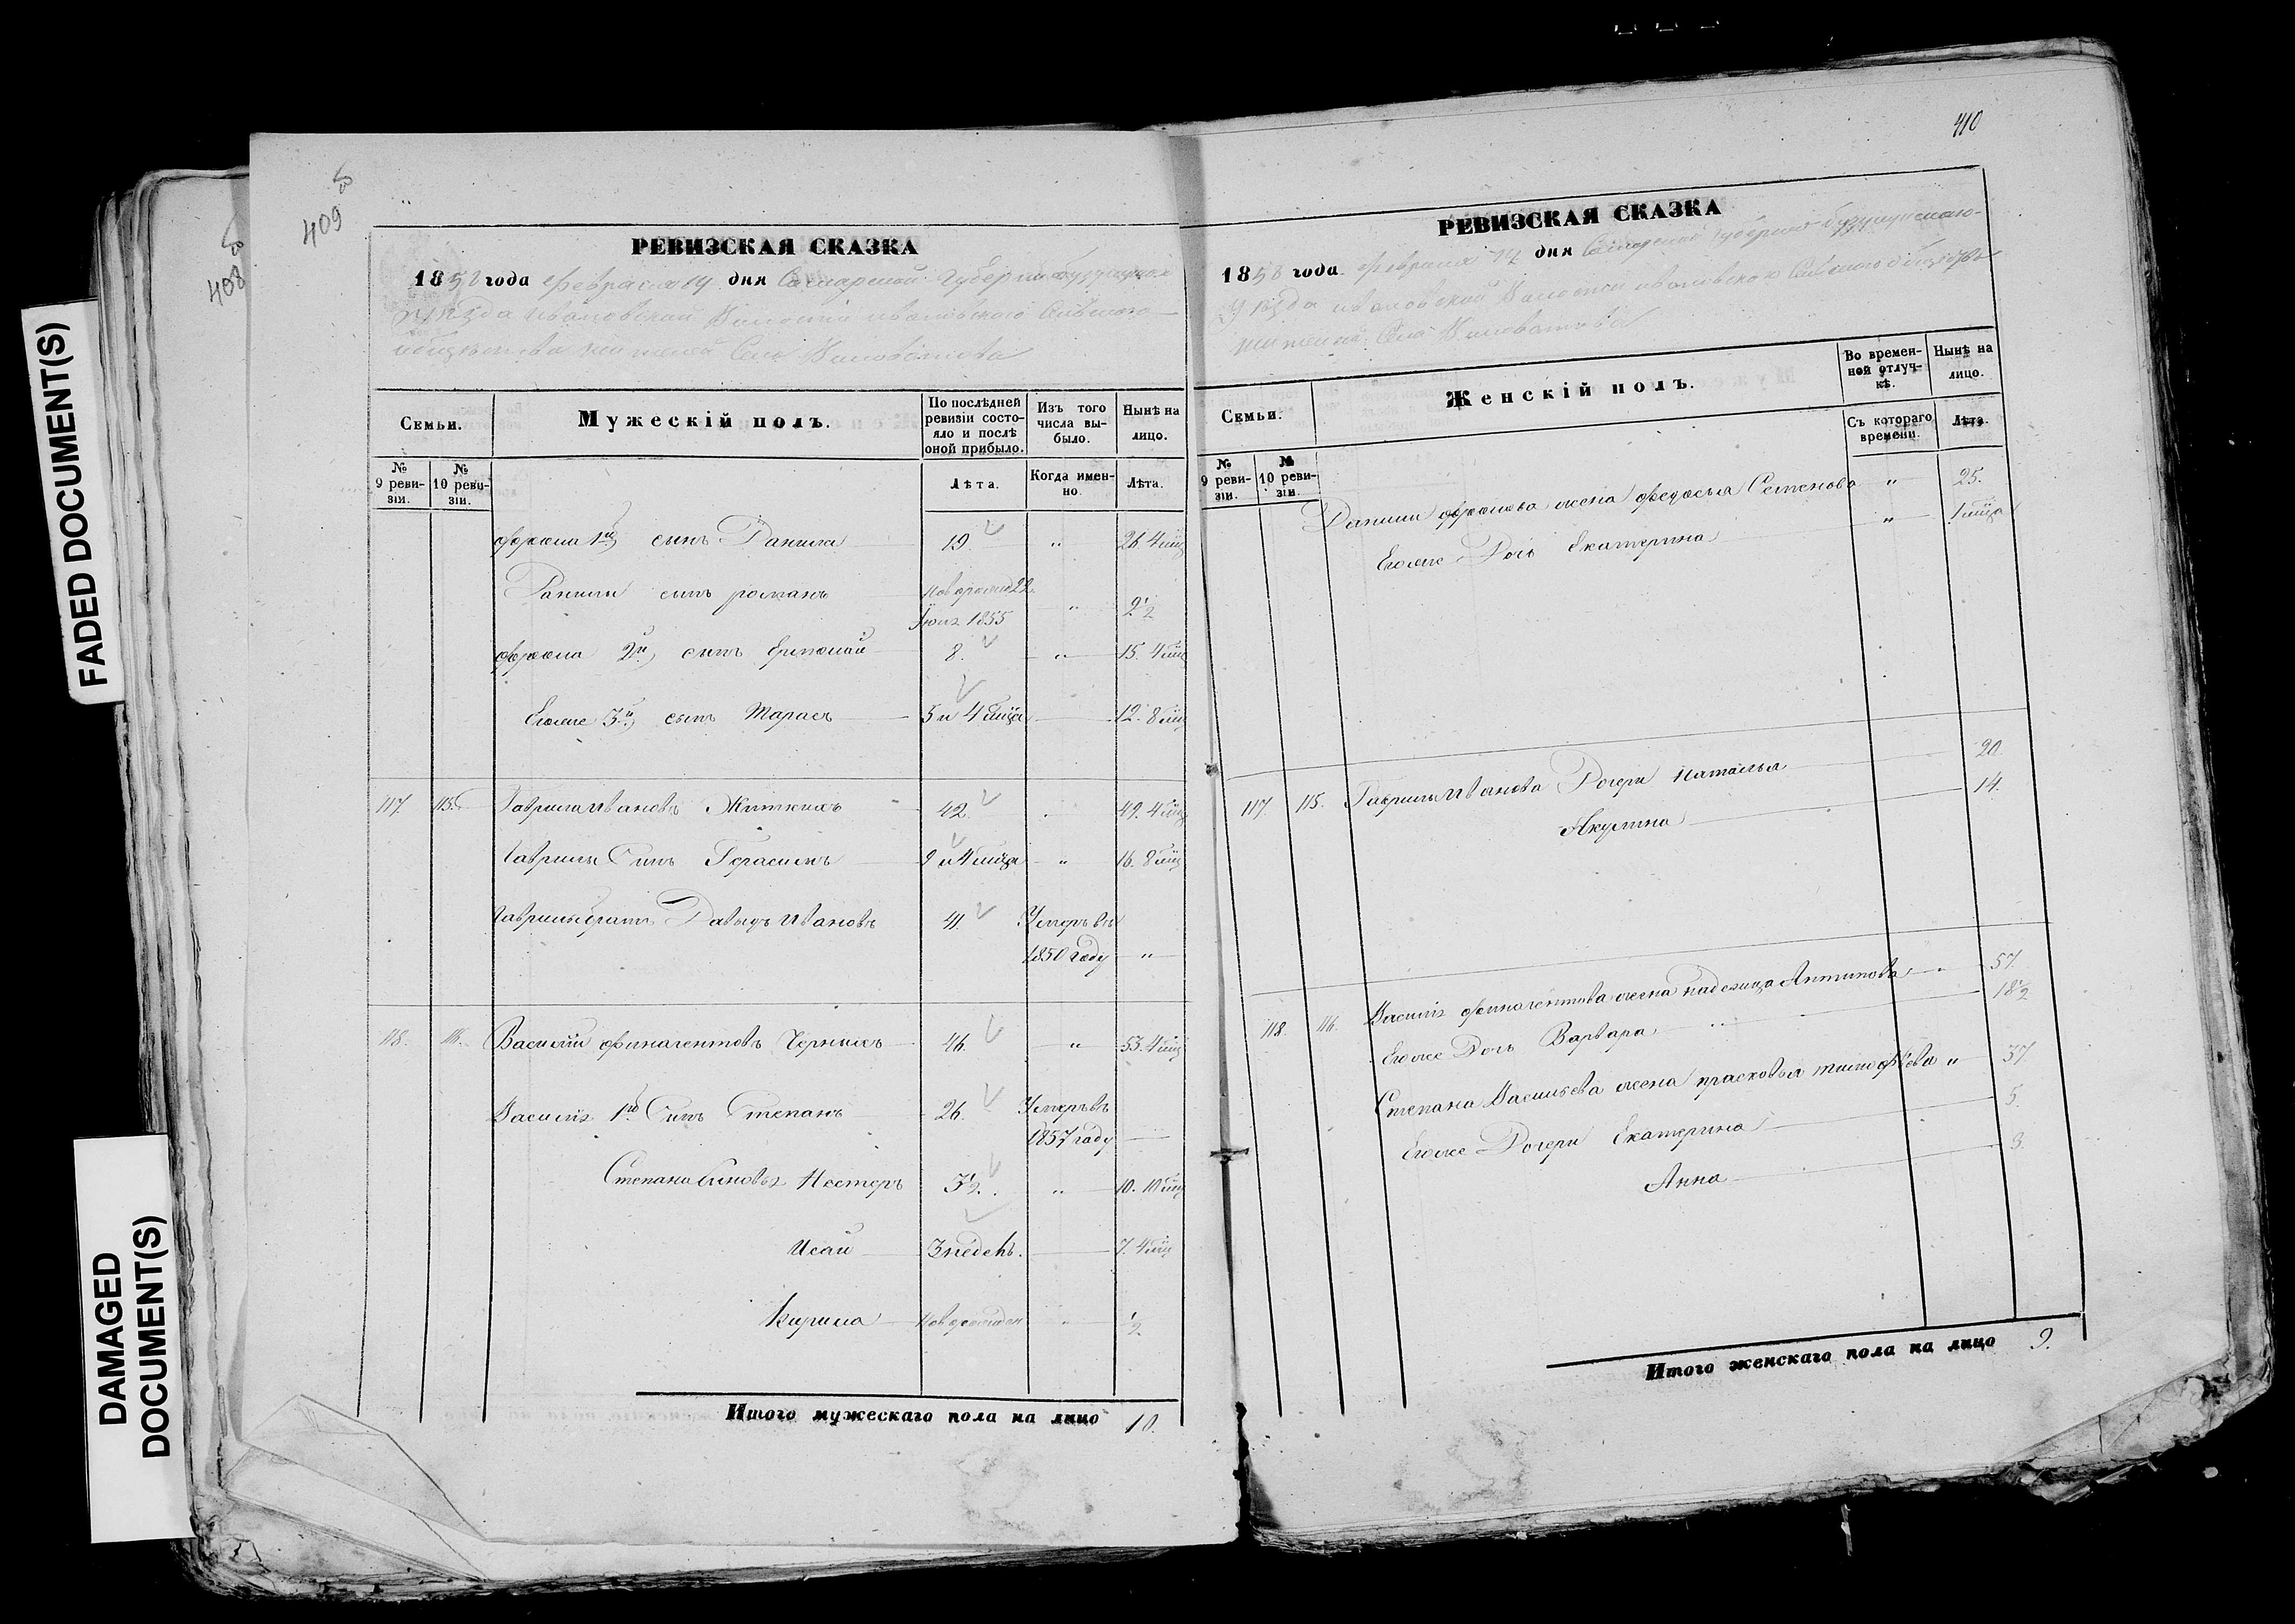 FADED DOCUMENT(S)
DAMAGED
DOCUMENT(S)
408
409
РЕВИЗСКАЯ СКАЗКА
1858 года февраля 14 дня Самарской Губернии Бузулукскаго
уѣзда Ивановской Волости Ивановскаго Сельскаго
общества жителей Села
Семьи.
Мужескій полъ.
По послѣдней
ревизіи состо-
яло и послѣ
оной прибыло.
Изъ того
числа вы-
было.
Нынѣ на
лицо.
№
9 реви-
зіи.
№
10 реви-
зіи.
Лѣта.
Когда имен-
но.
Лѣта.
1й сынъ Данила 19. " 26 4 мѣц
Данилы сынъ романъ новорожд 22 Іюля 1855 " 2½
2й, сынъ 8. " 15. 4 мѣц
Егоже 3й, сынъ Тарасъ 5 и 4 мѣца 12. 8 мѣц
117. 115. Гаврила Ивановъ 42. 49. 4 мѣц
Гаврилы Сынъ Герасимъ 9 и 4 мѣца " 16. 8 мѣц
Гаврилы братъ Давыдъ Ивановъ 41. Умеръ въ
1850 году "
118. 116. Василій финагентовъ Черныхъ 46. " 53. 4 мѣц
Василья 1й Сынъ Степанъ 26. Умеръ въ
1857 году
Степана Сыновья Нестеръ 3½. " 10. 10 мѣц
Исай 3 недель. 7. 4 мѣц
Кирила новорожден " ½
Итого мужескаго пола на лицо 10.
410
РЕВИЗСКАЯ СКАЗКА
1858 года февраля 14 дня Самарской губерніи бузулукскаго
Уѣзда Ивановской Волости Ивановскаго Сельскаго общества
жителей Села
Семьи.
Женскій полъ.
Во времен-
ной отлуч-
кѣ.
Нынѣ на
лицо.
№
9 реви-
зіи.
№
10 реви-
зіи.
Съ котораго
времени.
Лѣта.
Данилы жена федосья Семенова " 25.
Егоже Дочь Екатерина " 1 мѣца
117. 115. Гаврилы Иванова Дочери Наталья 20.
Акулина 14.
118. 116. Василья финагентова жена надежда Антипова " 57.
Егоже Дочь Варвара " 18½
Степана Васильева жена прасковья тимофѣева " 37
Егоже Дочери Екатерина 5.
Анна 3.
Итого женскаго пола на лицо 9.